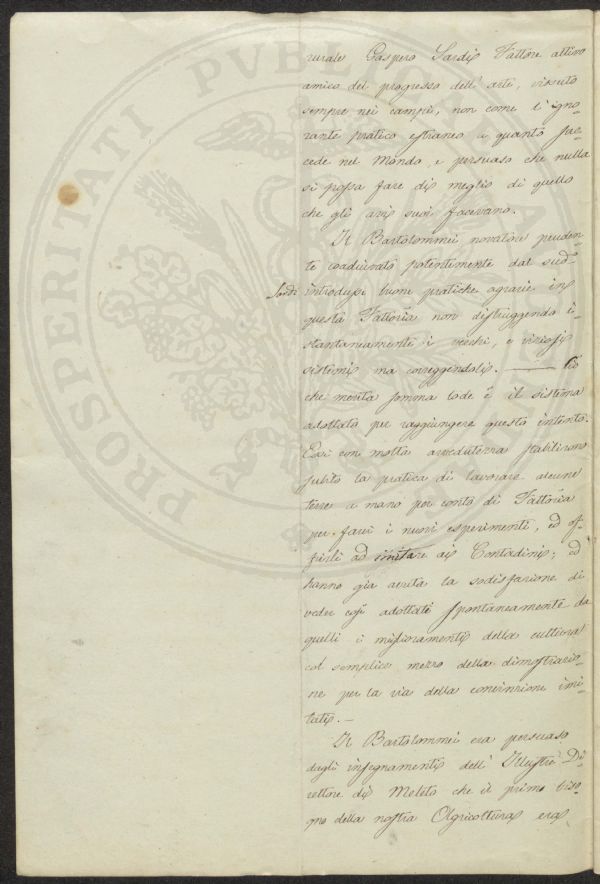 rurale Gaspero Sardi Fattore attivo
amico del progresso dell'arti, vissuto
sempre nei campi, non come l'igno-
rante pratico estraneo a quanto suc-
cede nel Mondo, e persuaso che nulla
si possa fare di meglio di quello
che gli avi suoi facevano.
Il Bartolommei novatore pruden-
te coadiuvato potentemente dal sudº
Sardi introdusse buone pratiche agrarie in
questa Fattoria non distruggendo i-
stantaneamente i vecchi, e viziosi
sistemi ma correggendoli. — Ciò
che merita somma lode è il sistema
adottato per raggiungere questo intento.
Essi con molta avvedutezza stabilirono
subito la pratica di lavorare alcune
terre a mano per conto di Fattoria
per farvi i nuovi esperimenti, ed of-
frirli ad imitare ai Contadini; ed
hanno già avuta la sodisfazione di
veder così adottati spontaneamente da
quelli i miglioramenti della cultura
col semplice mezzo della dimostrazio-
ne per la via della convinzione imi-
tati. —
Il Bartolommei era persuaso
degli insegnamenti dell'Illustre Di-
rettore di Meleto che il primo biso-
gno della nostra Agricoltura era
PROSPERITATI PUBLICAE